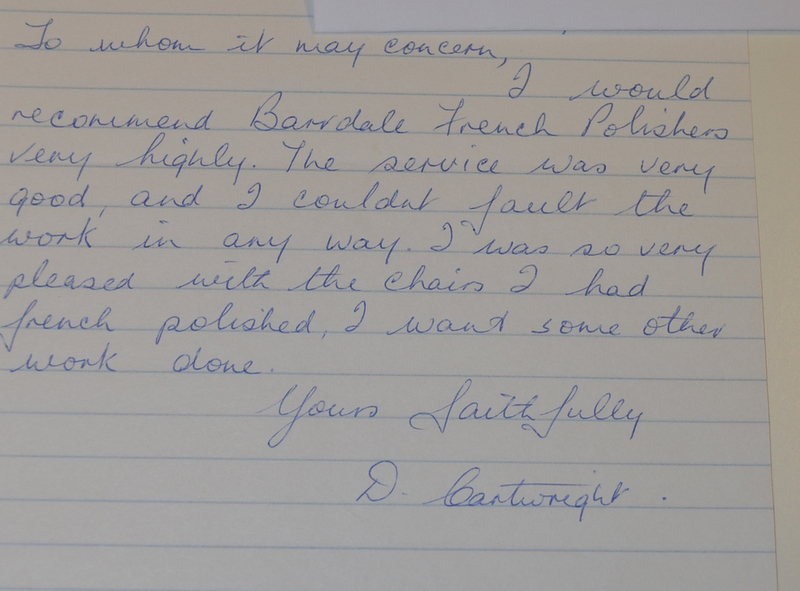 To whom it may concern,
I would
recommend Barrdale French Polishers
very highly. The service was very
good, and I couldnt fault the
work in any way. I was so very
pleased with the chairs I had
french polished, I want some other
work done.
Yours faithfully
D. Cartwright.